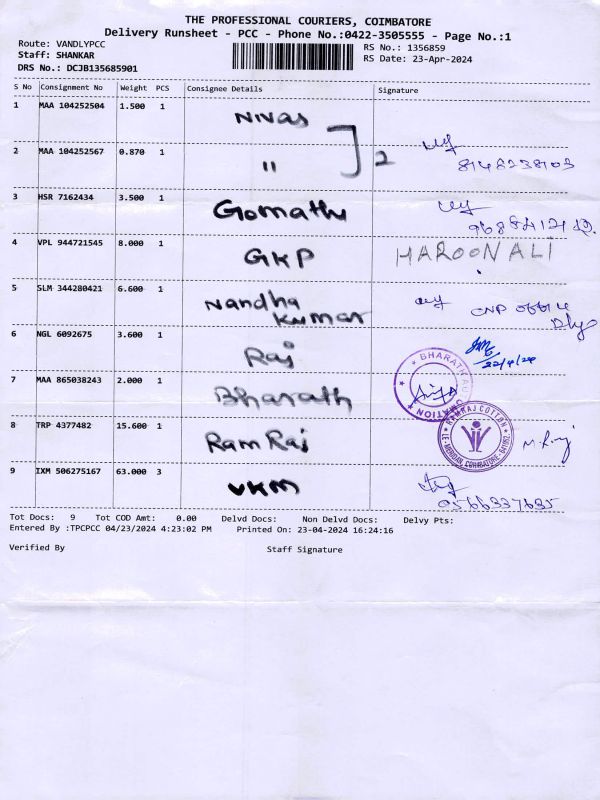 THE PROFESSIONAL COURIERS, COIMBATORE
Delivery Runsheet - PCC - Phone No.:0422-3505555 - Page No.:1
Route: VANDLYPCC
RS No.: 1356859
Staff: SHANKAR
RS Date: 23-Apr-2024
DRS No.: DCJB135685901
S No Consignment No Weight PCS Consignee Details Signature
1 MAA 104252504 1.500 1 Nivas
2 MAA 104252567 0.870 1 " 2 8148238103
3 HSR 7162434 3.500 1 Gomathi
4 VPL 944721545 8.000 1 GKP HAROON ALI
5 SLM 344280421 6.600 1 Nandha
Kumar
6 NGL 6092675 3.600 1 Raj
7 MAA 865038243 2.000 1 Bharath
8 TRP 4377482 15.600 1 Ram Raj RAMRAJ COTTON
9 IXM 506275167 63.000 3 VKM 9566337635
Tot Docs: 9 Tot COD Amt: 0.00 Delvd Docs: Non Delvd Docs: Delvy Pts:
Entered By :TPCPCC 04/23/2024 4:23:02 PM Printed On: 23-04-2024 16:24:16
Verified By Staff Signature